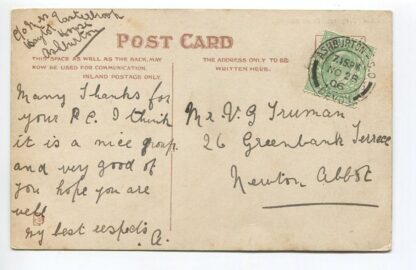 Ashburton
POST CARD
THIS SPACE AS WELL AS THE BACK, MAY
NOW BE USED FOR COMMUNICATION.
INLAND POSTAGE ONLY.
THE ADDRESS ONLY TO BE
WRITTEN HERE.
ASHBURTON S.O.
7.15PM
NO 28
06
DEVON
Many Thanks for
your P.C. I think
it is a nice group
and very good of
you hope you are
well
my best respects. A.
Mr. V G Truman
26 Greenbank Terrace
Newton Abbot